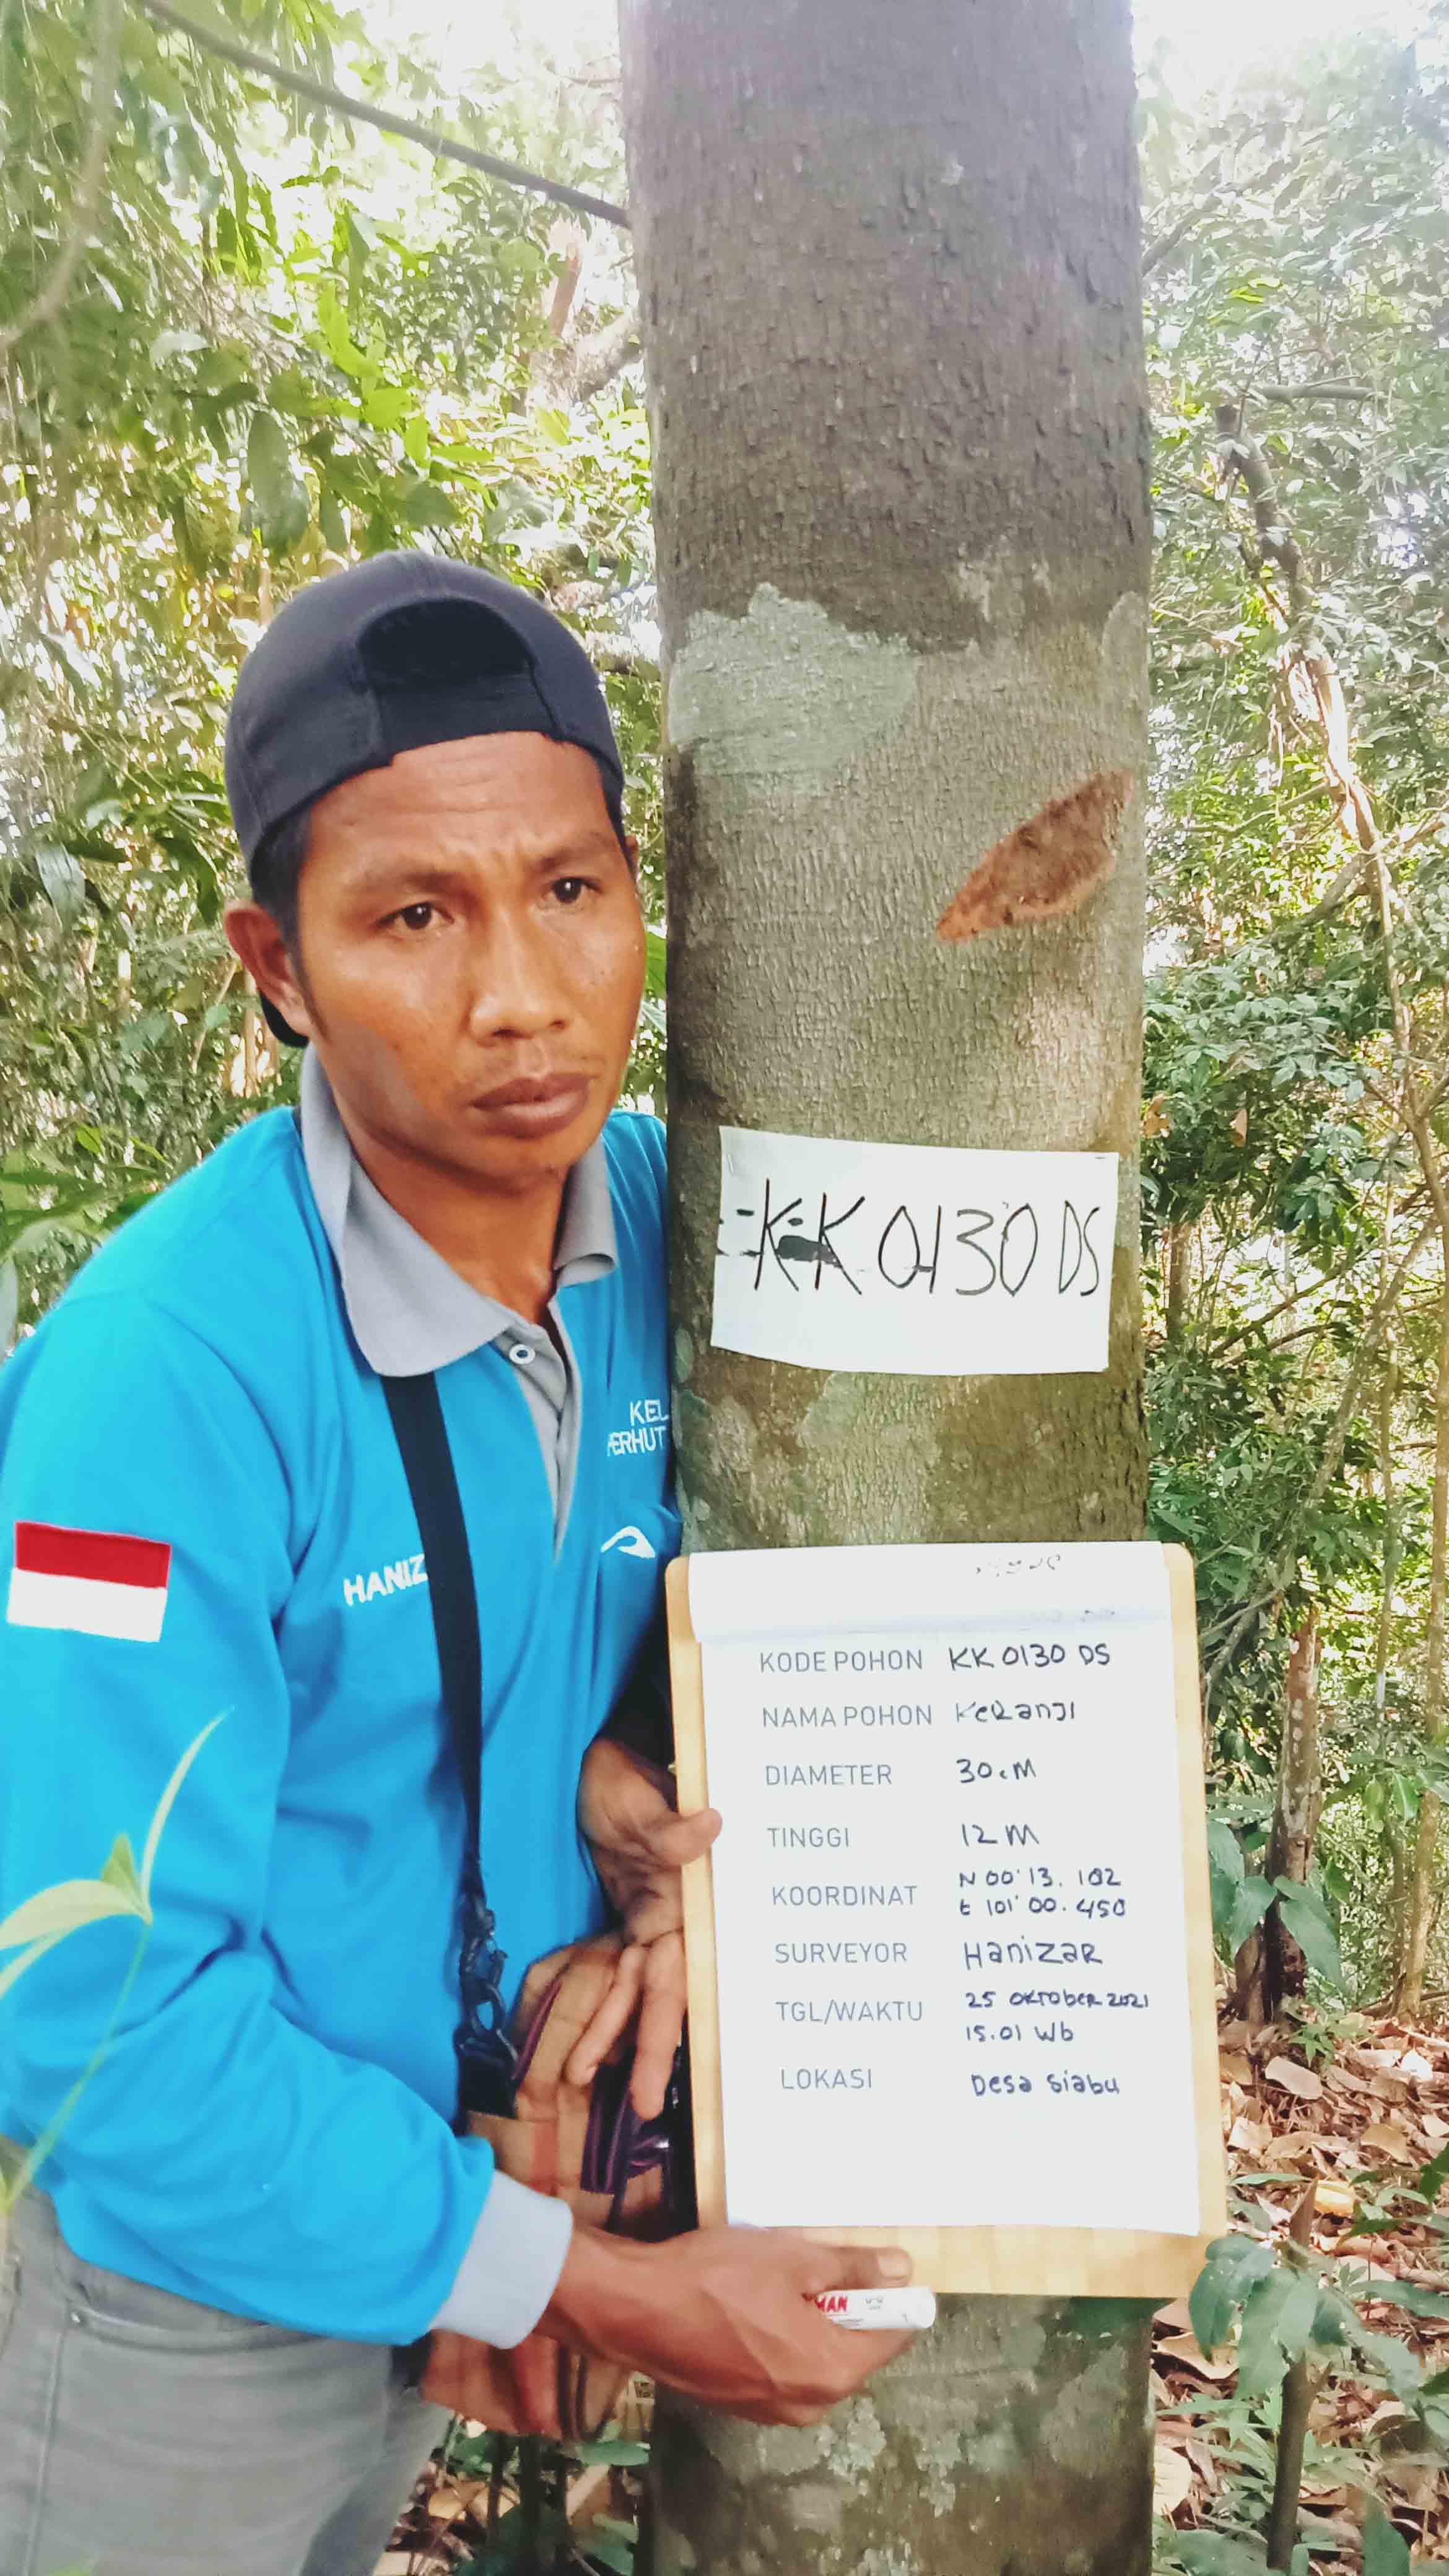 KK 0130 DS
KEL
PERHUT
HANIZ
KODE POHON KK 0130 DS
NAMA POHON KeRanJI
DIAMETER 30.M
TINGGI 12 M
KOORDINAT N 00'13. 102
E 101'00. 450
SURVEYOR HaniZaR
TGL/WAKTU 25 OKTOBER 2021
15.01 Wb
LOKASI Desa Siabu
MAN